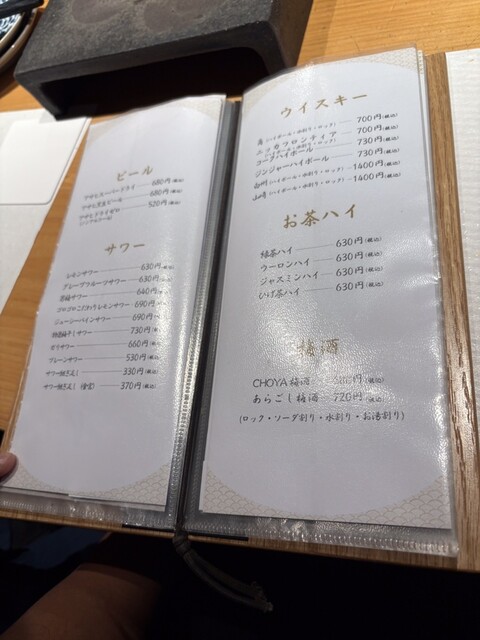 ビール
アサヒスーパードライ 680円(税込)
アサヒ生ビール 680円(税込)
アサヒドライゼロ 520円(税込)
(ノンアルコール)
サワー
レモンサワー 630円(税込)
グレープフルーツサワー 630円(税込)
640円(税込)
ゴロゴロこだわりレモンサワー 690円
ジューシーパインサワー 690円
梅干しサワー 730円(税込)
ガリサワー 660円(税込)
プレーンサワー 530円(税込)
サワー焼き足し 330円(税込)
サワー焼き足し 370円(税込)
ウイスキー
(ハイボール・水割り・ロック) 700円(税込)
ニッカフロンティア 700円(税込)
(ハイボール・水割り・ロック)
コークハイボール 730円(税込)
ジンジャーハイボール 730円(税込)
白州(ハイボール・水割り・ロック) 1400円(税込)
山崎(ハイボール・水割り・ロック) 1400円(税込)
お茶ハイ
緑茶ハイ 630円(税込)
ウーロンハイ 630円(税込)
ジャスミンハイ 630円(税込)
ひげ茶ハイ 630円(税込)
梅酒
CHOYA梅酒 円(税込)
あらごし梅酒 720円(税込)
(ロック・ソーダ割り・水割り・お湯割り)